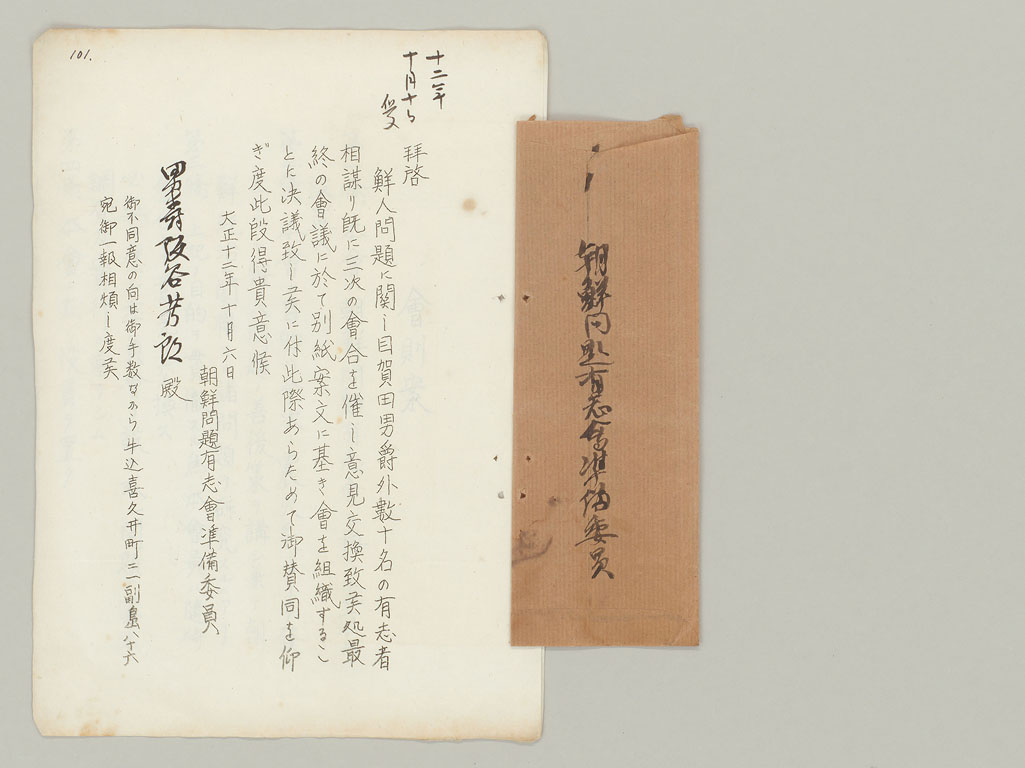 101.
十二年
十月十日
受
拝啓
鮮人問題に関し目賀田男爵外數十名の有志者
相謀り既に三次の會合を催し意見交換致候処最
終の會議に於て別紙案文に基き會を組織するこ
とに決議致し候に付此際あらためて御賛同を仰
ぎ度此段得貴意候
大正十二年十月六日
朝鮮問題有志會準備委員
男爵阪谷芳郎殿
御不同意の向は御手数ながら牛込喜久井町二副島八十六
宛御一報相煩し度候
朝鮮問題有志會準備委員